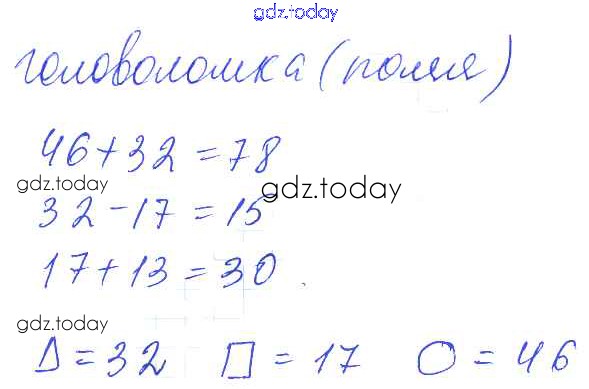 gdz.today
головоломка (поля)
46+32=78
gdz.today
gdz.today
32-17=15
17+13=30.
gdz.today
Δ=32 □=17 О=46